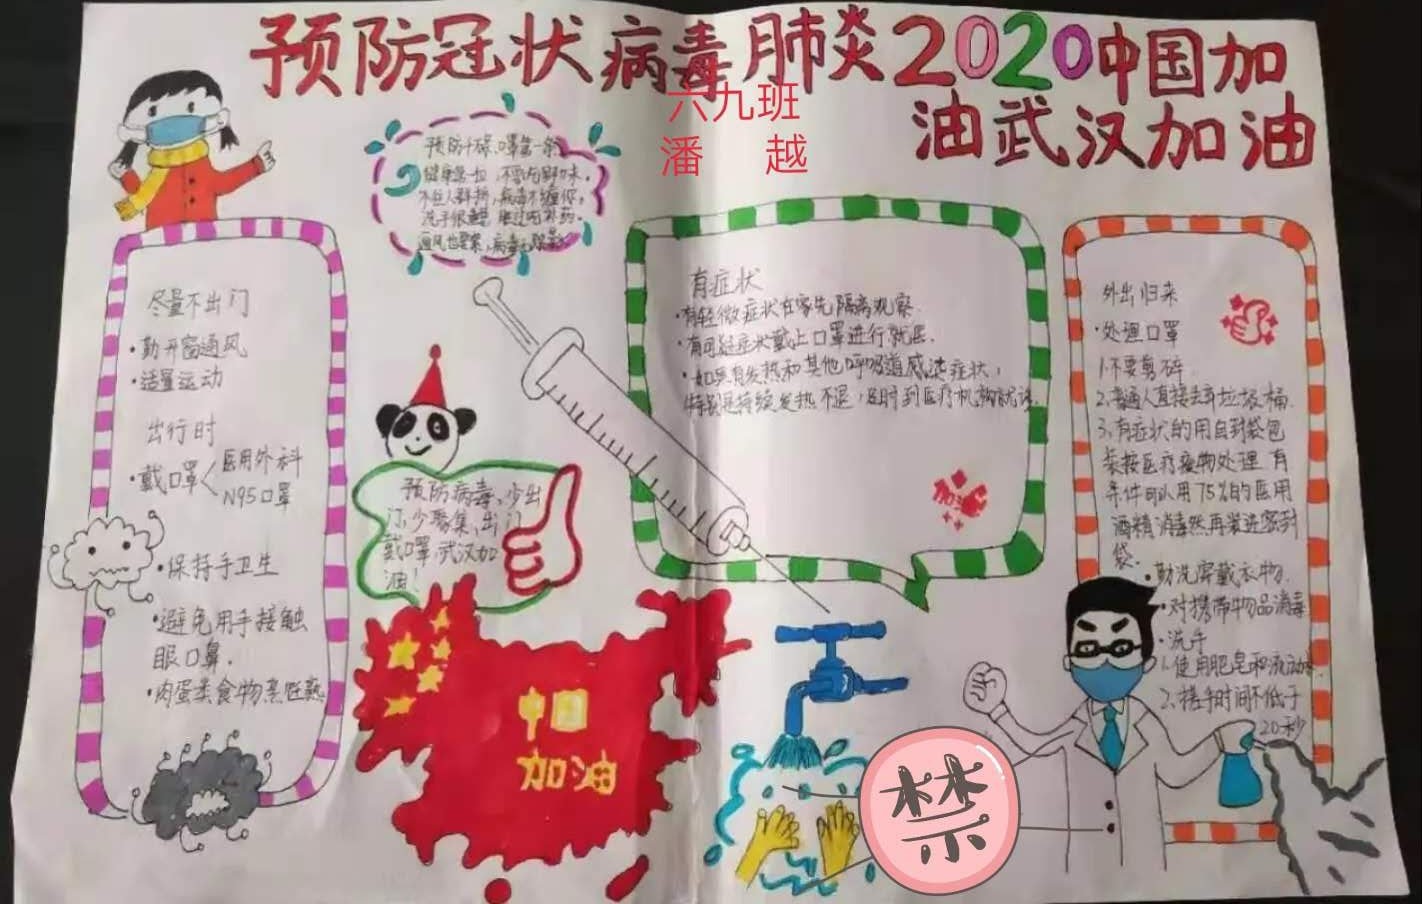 预防冠状病毒肺炎2020中国加
油武汉加油
六九班
潘 越
预防千万条,口罩第一条。
健康第一位,不要吃野味。
不往人群挤,病毒不缠你,
洗手很重要,胜过吃补药。
尽量不出门
·勤开窗通风
·适量运动
出行时
·戴口罩
医用外科
N95口罩
·保持手卫生
·避免用手接触
眼口鼻.
·肉蛋类食物烹饪熟
预防病毒、少出
门、少聚集,出门
戴口罩,武汉加
油!
中国
加油
有症状
·有轻微症状在家先隔离观察.
·有可疑症状戴上口罩进行就医.
·如果有发热和其他呼吸道感染症状,
特别是持续发热不退,及时到医疗机构就诊.
加油
外出归来
·处理口罩
1.不要剪碎
2.普通人直接丢弃垃圾桶.
3.有症状的用自封袋包
装按医疗废物处理 有
条件可以用75%的医用
酒精消毒然再装进密封
袋.
·勤洗穿戴衣物.
·对携带物品消毒
·洗手
1.使用肥皂和流动水
2.搓手时间不低于
20秒
禁